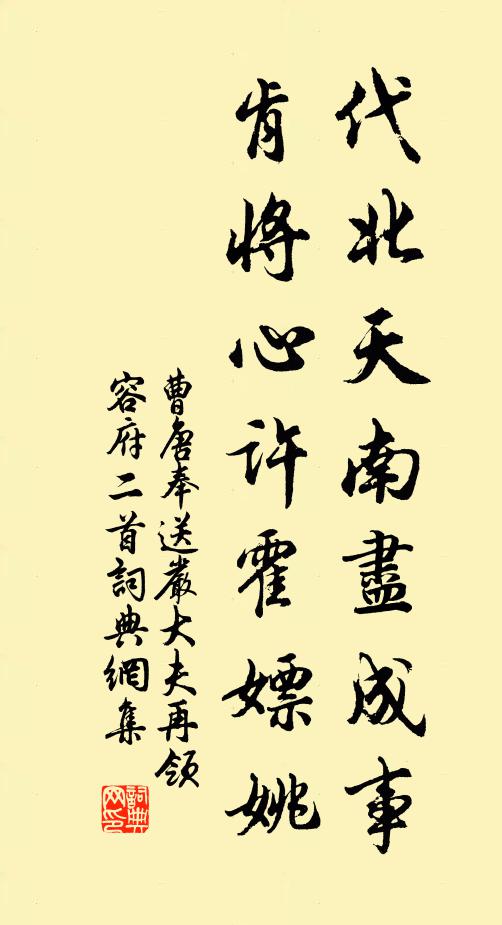 代北天南盡成事
肯將心許霍嫖姚
曹唐奉送嚴大夫再領
容府二首詞典網集
詞典
网印